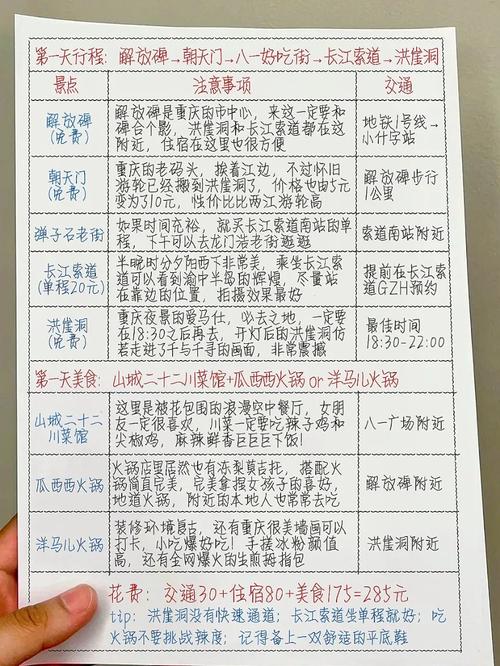 第一天行程: 解放碑→朝天门→八一好吃街→长江索道→洪崖洞
景点 注意事项 交通
解放碑
(免费)
解放碑是重庆的市中心，来这一定要和
碑合个影，洪崖洞和长江索道都在这
附近，住宿在这里也很方便
地铁1号线→
小什字站
朝天门
(免费)
重庆的老码头，挨着江边，不过怀旧
游轮已经搬到洪崖洞了，价格也由5元
变为310元，性价比比两江游轮高
解放碑步行
1公里
弹子石老街
如果时间充裕，就买长江索道南站的单
程，下午可以去龙门浩老街逛逛
索道南站附近
长江索道
(单程20元)
半晚时分夕阳西下非常美，乘坐长江索
道可以看到渝中半岛的辉煌，尽量站
在靠边的位置，拍摄效果最好
提前在长江索
道GZH预约
洪崖洞
(免费)
重庆夜景的爱马仕，必去之地，一定要
在18:30之后再去，开灯后的洪崖洞仿
若走进了千与千寻的画面，非常震撼
最佳时间
18:30-22:00
第一天美食: 山城二十二川菜馆+瓜西西火锅 or 洋马儿火锅
山城二十二
川菜馆
这里是被花包围的浪漫空中餐厅，女朋
友一定很喜欢，川菜一定要吃辣子鸡和
尖椒鸡，麻辣鲜香巨巨巨下饭!
八一广场附近
瓜西西火锅
火锅店里居然也有冻梨莫吉托，搭配火
锅简直完美，完美拿捏女孩子的喜好，
地道火锅，附近的本地人也常常去吃
解放碑附近
洋马儿火锅
装修环境复古，还有重庆很美墙画可以
打卡，小吃爆好吃! 手搓冰粉颜值
高，还有全网爆火的生煎拇指包
洪崖洞附近
花费: 交通30+住宿80+美食175=285元
tip: 洪崖洞没有快速通道; 长江索道坐单程就好; 吃
火锅不要挑战辣度; 记得备上一双舒适的平底鞋